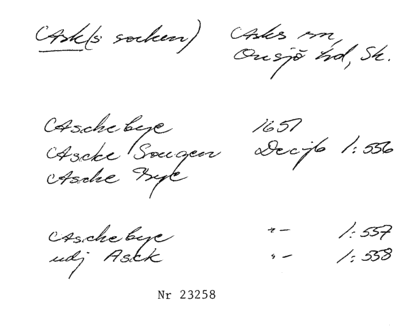 Ask(s socken) Asks sn,
Onsjö hd, Sk.
Aschebye 1651
Ascke Sougen Decjb 1:556
Asche Bye
Aschebye "- 1:557
udj Asck "- 1:558
Nr 23258